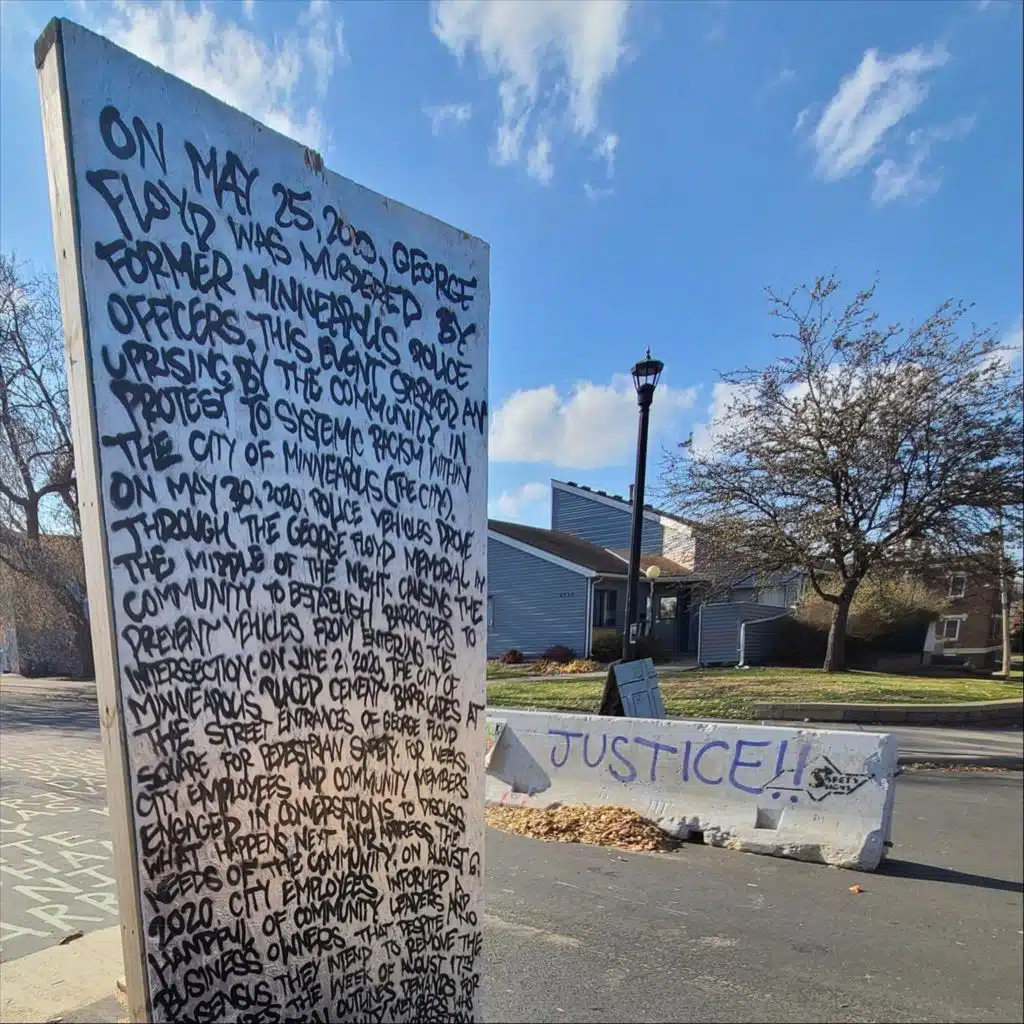 ON MAY 25, 2020, GEORGE
FLOYD WAS MURDERED BY
FORMER MINNEAPOLIS POLICE
OFFICERS. THIS EVENT SPARKED AN
UPRISING BY THE COMMUNITY IN
PROTEST TO SYSTEMIC RACISM WITHIN
THE CITY OF MINNEAPOLIS (THE CITY).
ON MAY 30, 2020, POLICE VEHICLES DROVE
THROUGH THE GEORGE FLOYD MEMORIAL IN
THE MIDDLE OF THE NIGHT, CAUSING THE
COMMUNITY TO ESTABLISH BARRICADES TO
PREVENT VEHICLES FROM ENTERING THE
INTERSECTION. ON JUNE 2, 2020, THE CITY OF
MINNEAPOLIS PLACED CEMENT BARRICADES AT
THE STREET ENTRANCES OF GEORGE FLOYD
SQUARE FOR PEDESTRIAN SAFETY. FOR WEEKS,
CITY EMPLOYEES AND COMMUNITY MEMBERS
ENGAGED IN CONVERSATIONS TO DISCUSS
WHAT HAPPENS NEXT AND ADDRESS THE
NEEDS OF THE COMMUNITY. ON AUGUST 6,
2020 CITY EMPLOYEES INFORMED A
HANDFUL OF COMMUNITY LEADERS AND
BUSINESS OWNERS THAT DESPITE NO
CONSENSUS, THEY INTEND TO REMOVE THE
THE WEEK OF AUGUST 17TH.
OUTLINES DEMANDS FOR
JUSTICE!!
SAFETY
SIGNS